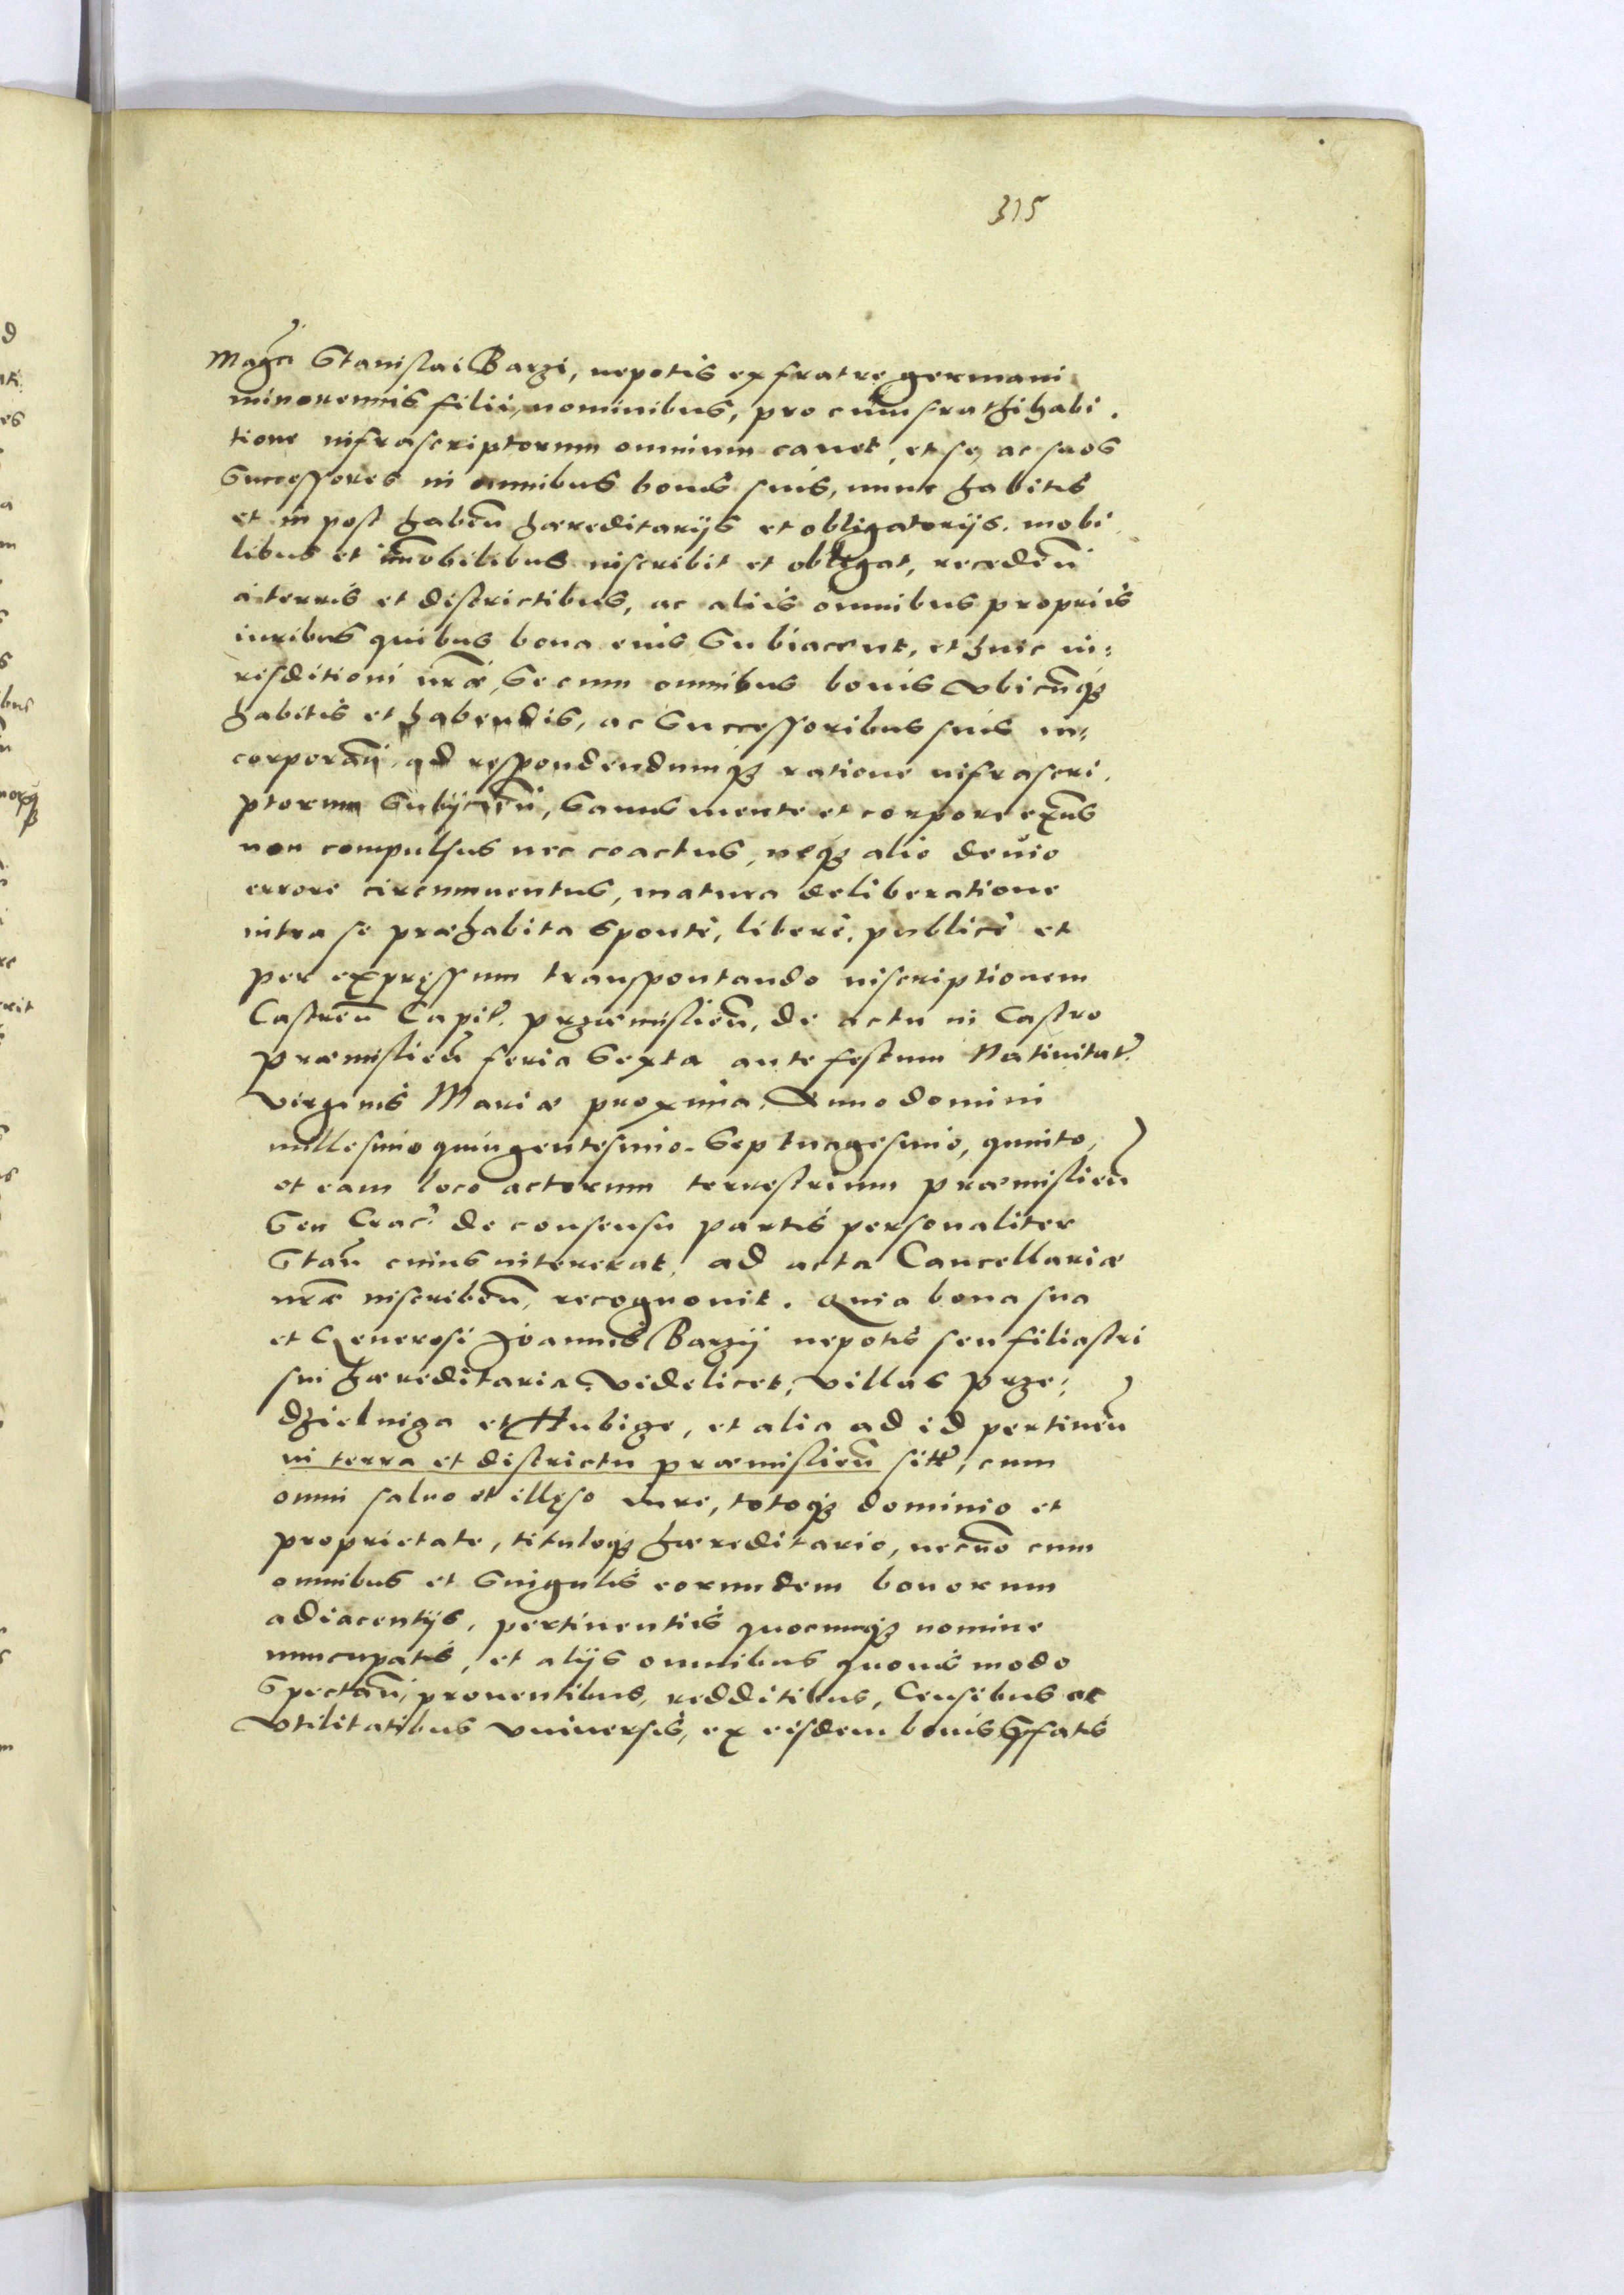 315
Magci Stanislai Barzi, nepotis ex fratre germani
minorennis filii, nominibus, pro cuius rathihabi.
tione infrascriptorum omnium cavet, et se, ac suos
Successores in omnibus bonis suis, nunc habitis
et in post haben haereditarijs et obligatorijs. mobi
libus et imobilibus inscribit et obligat, receden
a terris et districtibus, ac aliis omnibus propriis
iuribus quibus bona eius Subiacent, et huic iu:
risditioni nrae, Se cum omnibus bonis vbicunq3
habitis et habendis, ac Successoribus suis in:
corporan, ad respondendumq3 ratione infrascri.
ptorum Subijcien, Sanus mente et corpore exns
non compulsus nec coactus, neq3 alio devio
errore circumuentus, matura deliberatione
intra se praehabita Sponte, libere, publice et
per expressum transportando inscriptionem
Castren Capit. przemislien, de actu in Castro
praemislien feria Sexta ante festum Nativitat.
virginis Mariae proxima, Anno domini
millesimo quingentesimo Septuagesimo, quinto,
et eam loco actorum terrestrium praemislien
Seu Crac. de consensu partis personaliter
Stan cuius intererat, ad acta Cancellariae
nrae inscriben, recognovit. Quia bona sua
et Generosi Joannis Barzij nepotis seu filiastri
sui haereditaria, videlicet, villas Prze:
dzielniza et Hubize, et alia ad id pertinen
in terra et districtu praemislien sitt, cum
omni saluo et illęso iure, totoq3 dominio et
proprietate, tituloq3 haereditario, necno cum
omnibus et Singulis eorundem bonorum
adiacentijs, pertinentiis quocunq3 nomine
nuncupatis, et alijs omnibus quovis modo
Spectan, proventibus, redditibus, Censibus et
vtilitatibus vniversis, ex eisdem bonis prfatis